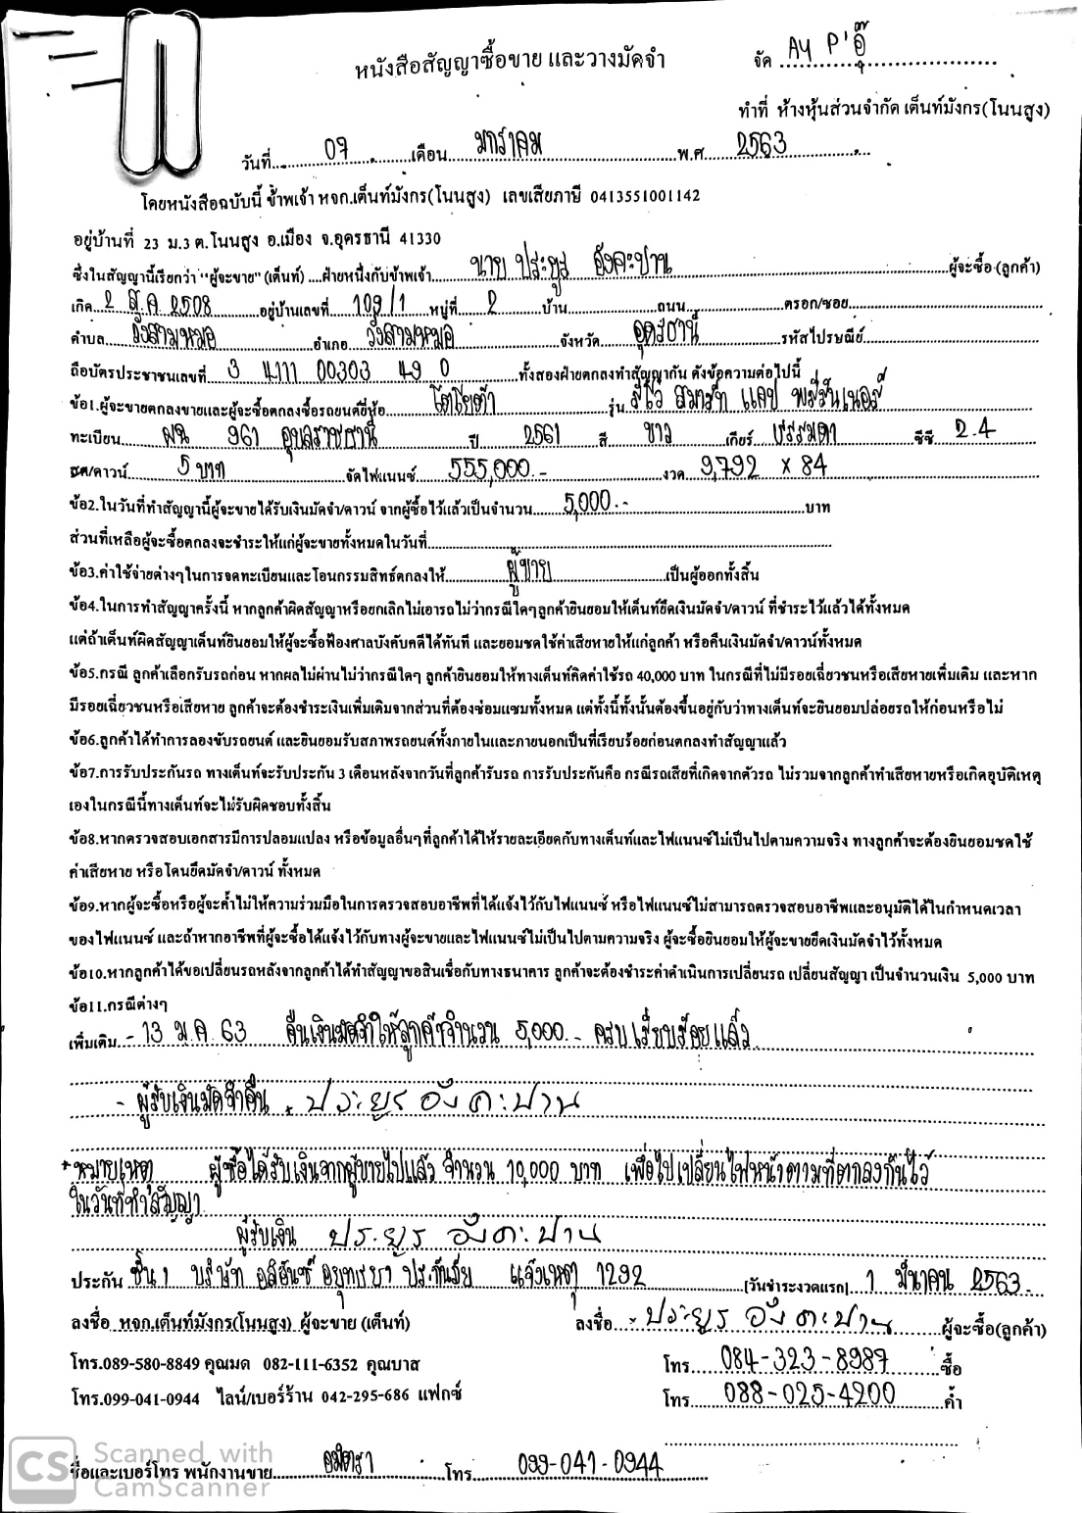 หนังสือสัญญาซื้อขาย และวางมัดจำ
จัด AY P'อุ๊
ทำที่ ห้างหุ้นส่วนจำกัด เต็นท์มังกร(โนนสูง)
วันที่ 07 เดือน มกราคม พ.ศ 2563
โดยหนังสือฉบับนี้ ข้าพเจ้า หจก.เต็นท์มังกร(โนนสูง) เลขเสียภาษี 0413551001142
อยู่บ้านที่ 23 ม.3 ต.โนนสูง อ.เมือง จ.อุดรธานี 41330
ซึ่งในสัญญานี้เรียกว่า "ผู้จะขาย" (เต็นท์) ....ฝ่ายหนึ่งกับข้าพเจ้า นาย ประยูร อังคะปาน ผู้จะซื้อ (ลูกค้า)
เกิด 2 ส.ค 2508 อยู่บ้านเลขที่ 109/1 หมู่ที่ 2 บ้าน ถนน ตรอก/ซอย
ตำบล วังสามหมอ อำเภอ วังสามหมอ จังหวัด อุดรธานี รหัสไปรษณีย์
ถือบัตรประชาชนเลขที่ 3 4111 00303 49 0 ทั้งสองฝ่ายตกลงทำสัญญากัน ดังข้อความต่อไปนี้
ข้อ1.ผู้จะขายตกลงขายและผู้จะซื้อตกลงซื้อรถยนต์ยี่ห้อ โตโยต้า รุ่น รีโว่ สมาร์ท แคป พรีรันเนอร์
ทะเบียน ผน 961 อุบลราชธานี ปี 2561 สี ขาว เกียร์ ธรรมดา ซีซี 2.4
สด/ดาวน์ 5 บาท จัดไฟแนนซ์ 555,000.- งวด 9,792 x 84
ข้อ2.ในวันที่ทำสัญญานี้ผู้จะขายได้รับเงินมัดจำ/ดาวน์ จากผู้ซื้อไว้แล้วเป็นจำนวน 5,000.- บาท
ส่วนที่เหลือผู้จะซื้อตกลงจะชำระให้แก่ผู้จะขายทั้งหมดในวันที่
ข้อ3.ค่าใช้จ่ายต่างๆในการจดทะเบียนและโอนกรรมสิทธ์ตกลงให้ ผู้ขาย เป็นผู้ออกทั้งสิ้น
ข้อ4.ในการทำสัญญาครั้งนี้ หากลูกค้าผิดสัญญาหรือยกเลิกไม่เอารถไม่ว่ากรณีใดๆลูกค้ายินยอมให้เต็นท์ยึดเงินมัดจำ/ดาวน์ ที่ชำระไว้แล้วได้ทั้งหมด
แต่ถ้าเต็นท์ผิดสัญญาเต็นท์ยินยอมให้ผู้จะซื้อฟ้องศาลบังคับคดีได้ทันที และยอมชดใช้ค่าเสียหายให้แก่ลูกค้า หรือคืนเงินมัดจำ/ดาวน์ทั้งหมด
ข้อ5.กรณี ลูกค้าเลือกรับรถก่อน หากผลไม่ผ่านไม่ว่ากรณีใดๆ ลูกค้ายินยอมให้ทางเต็นท์คิดค่าใช้รถ 40,000 บาท ในกรณีที่ไม่มีรอยเฉี่ยวชนหรือเสียหายเพิ่มเติม และหาก
มีรอยเฉี่ยวชนหรือเสียหาย ลูกค้าจะต้องชำระเงินเพิ่มเติมจากส่วนที่ต้องซ่อมแซมทั้งหมด แต่ทั้งนี้ทั้งนั้นต้องขึ้นอยู่กับว่าทางเต็นท์จะยินยอมปล่อยรถให้ก่อนหรือไม่
ข้อ6.ลูกค้าได้ทำการลองขับรถยนต์ และยินยอมรับสภาพรถยนต์ทั้งภายในและภายนอกเป็นที่เรียบร้อยก่อนตกลงทำสัญญาแล้ว
ข้อ7.การรับประกันรถ ทางเต็นท์จะรับประกัน 3 เดือนหลังจากวันที่ลูกค้ารับรถ การรับประกันคือ กรณีรถเสียที่เกิดจากตัวรถ ไม่รวมจากลูกค้าทำเสียหายหรือเกิดอุบัติเหตุ
เองในกรณีนี้ทางเต็นท์จะไม่รับผิดชอบทั้งสิ้น
ข้อ8.หากตรวจสอบเอกสารมีการปลอมแปลง หรือข้อมูลอื่นๆที่ลูกค้าได้ให้รายละเอียดกับทางเต็นท์และไฟแนนซ์ไม่เป็นไปตามความจริง ทางลูกค้าจะต้องยินยอมชดใช้
ค่าเสียหาย หรือโดนยึดมัดจำ/ดาวน์ ทั้งหมด
ข้อ9.หากผู้จะซื้อหรือผู้จะค้ำไม่ให้ความร่วมมือในการตรวจสอบอาชีพที่ได้แจ้งไว้กับไฟแนนซ์ หรือไฟแนนซ์ไม่สามารถตรวจสอบอาชีพและอนุมัติได้ในกำหนดเวลา
ของไฟแนนซ์ และถ้าหากอาชีพที่ผู้จะซื้อได้แจ้งไว้กับทางผู้จะขายและไฟแนนซ์ไม่เป็นไปตามความจริง ผู้จะซื้อยินยอมให้ผู้จะขายยึดเงินมัดจำไว้ทั้งหมด
ข้อ10.หากลูกค้าได้ขอเปลี่ยนรถหลังจากลูกค้าได้ทำสัญญาขอสินเชื่อกับทางธนาคาร ลูกค้าจะต้องชำระค่าดำเนินการเปลี่ยนรถ เปลี่ยนสัญญา เป็นจำนวนเงิน 5,000 บาท
ข้อ11.กรณีต่างๆ
เพิ่มเติม - 13 ม.ค. 63 คืนเงินมัดจำให้ลูกค้าจำนวน 5,000.- ครบเรียบร้อยแล้ว
- ผู้รับเงินมัดจำคืน ประยูร อังคะปาน
*หมายเหตุ ผู้ซื้อได้รับเงินจากผู้ขายไปแล้ว จำนวน 10,000 บาท เพื่อไปเปลี่ยนไฟหน้าตามที่ตกลงกันไว้
ในวันที่ทำสัญญา
ผู้รับเงิน ประยูร อังคะปาน
ประกัน ชั้น 1 บริษัท อลิอันซ์ อยุทธยา ประกันภัย แจ้งเหตุ 1292 [วันชำระงวดแรก] 1 มีนาคม 2563
ลงชื่อ หจก.เต็นท์มังกร(โนนสูง) ผู้จะขาย (เต็นท์) ลงชื่อ ประยูร อังคะปาน ผู้จะซื้อ(ลูกค้า)
โทร.089-580-8849 คุณมด 082-111-6352 คุณบาส โทร 084-323-8987 ซื้อ
โทร.099-041-0944 ไลน์/เบอร์ร้าน 042-295-686 แฟกซ์ โทร 088-025-4200 ค้ำ
ชื่อและเบอร์โทร พนักงานขาย โทร 099-041-0944
CS Scanned with
CamScanner